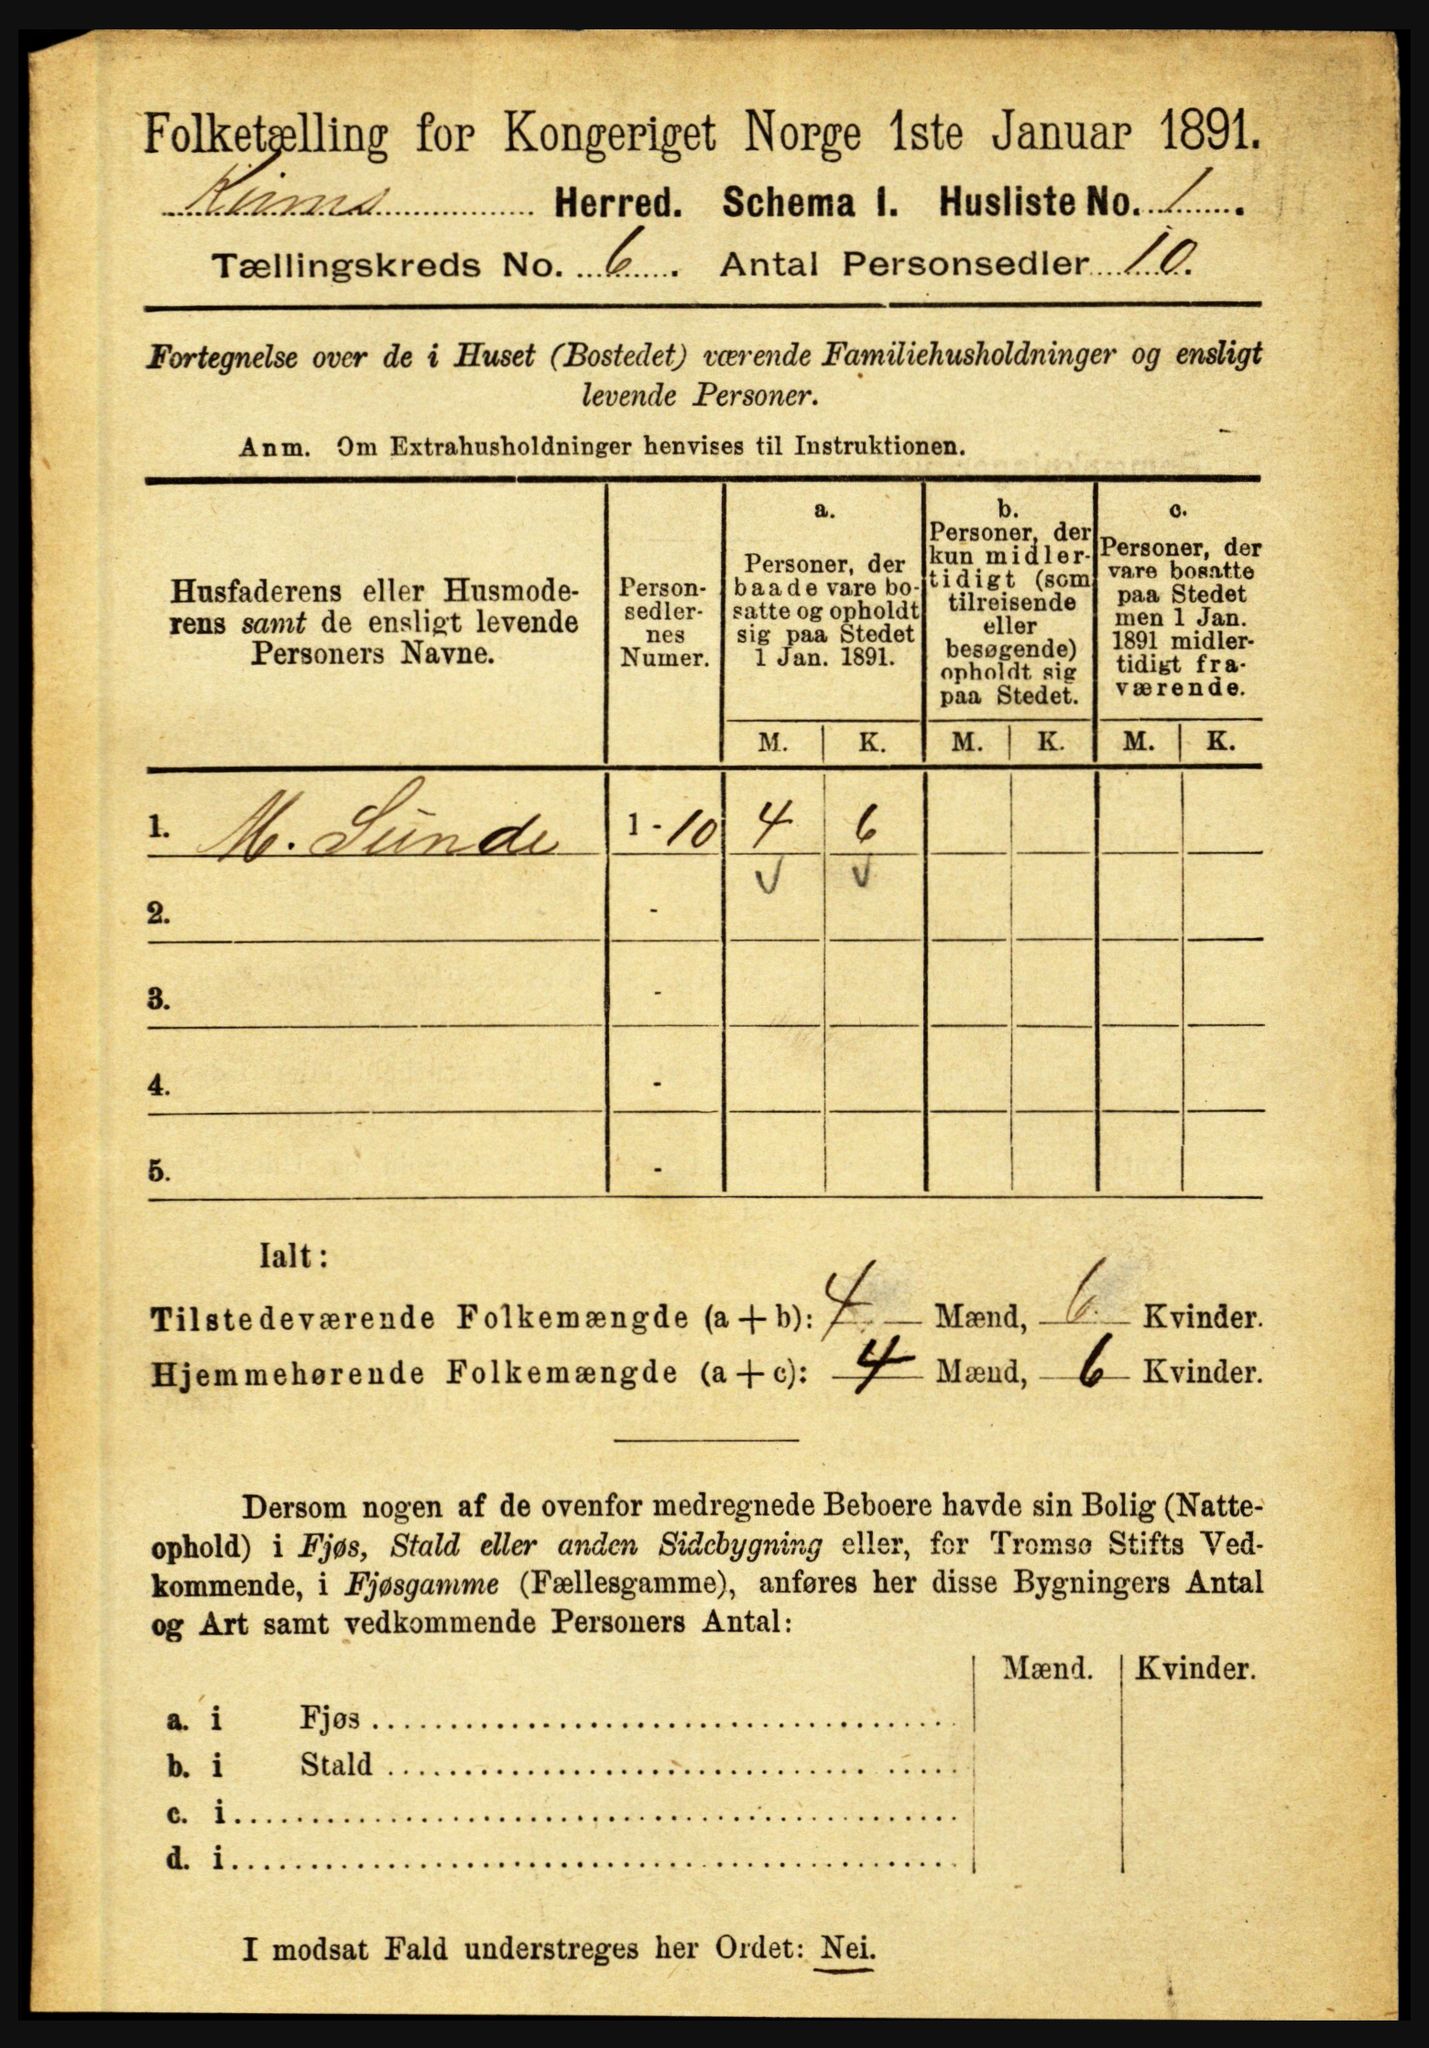 Folketælling for Kongeriget Norge 1ste Januar 1891.
Kinns Herred. Schema I. Husliste No. 1.
Tællingskreds No. 6. Antal Personsedler 10.
Fortegnelse over de i Huset (Bostedet) værende Familiehusholdninger og ensligt
levende Personer.
Anm. Om Extrahusholdninger henvises til Instruktionen.
Husfaderens eller Husmode-
rens samt de ensligt levende
Personers Navne.
Person-
sedler-
nes
Numer.
a.
Personer, der
baade vare bo-
satte og opholdt
sig paa Stedet
1 Jan. 1891.
b.
Personer, der
kun midler-
tidigt (som
tilreisende
eller
besøgende)
opholdt sig
paa Stedet.
c.
Personer, der
vare bosatte
paa Stedet
men 1 Jan.
1891 midler-
tidigt fra-
værende.
M. K. M. K. M. K.
1. M. Sunde 1-10 4 6
2. -
3. -
4. -
5. -
Ialt:
Tilstedeværende Folkemængde (a+b): 4 Mænd, 6 Kvinder.
Hjemmehørende Folkemængde (a+c): 4 Mænd, 6 Kvinder.
Dersom nogen af de ovenfor medregnede Beboere havde sin Bolig (Natte-
ophold) i Fjøs, Stald eller anden Sidebygning eller, for Tromsø Stifts Ved-
kommende, i Fjøsgamme (Fællesgamme), anføres her disse Bygningers Antal
og Art samt vedkommende Personers Antal:
Mænd. Kvinder.
a. i Fjøs
b. i Stald
c. i
d. i
I modsat Fald understreges her Ordet: Nei.